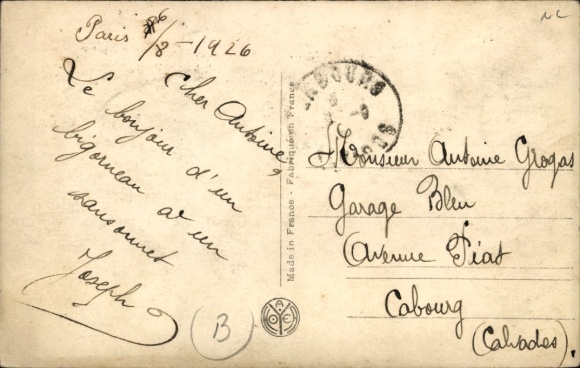 Paris 6/8-1926
Cher Antoine,
Le bonjour d'un
bigorneau a un
sansonnet
Joseph
B
Made in France - Fabriqué en France
Monsieur Antoine Grogas
Garage Bleu
Avenue Piat
Cabourg
(Calvados).